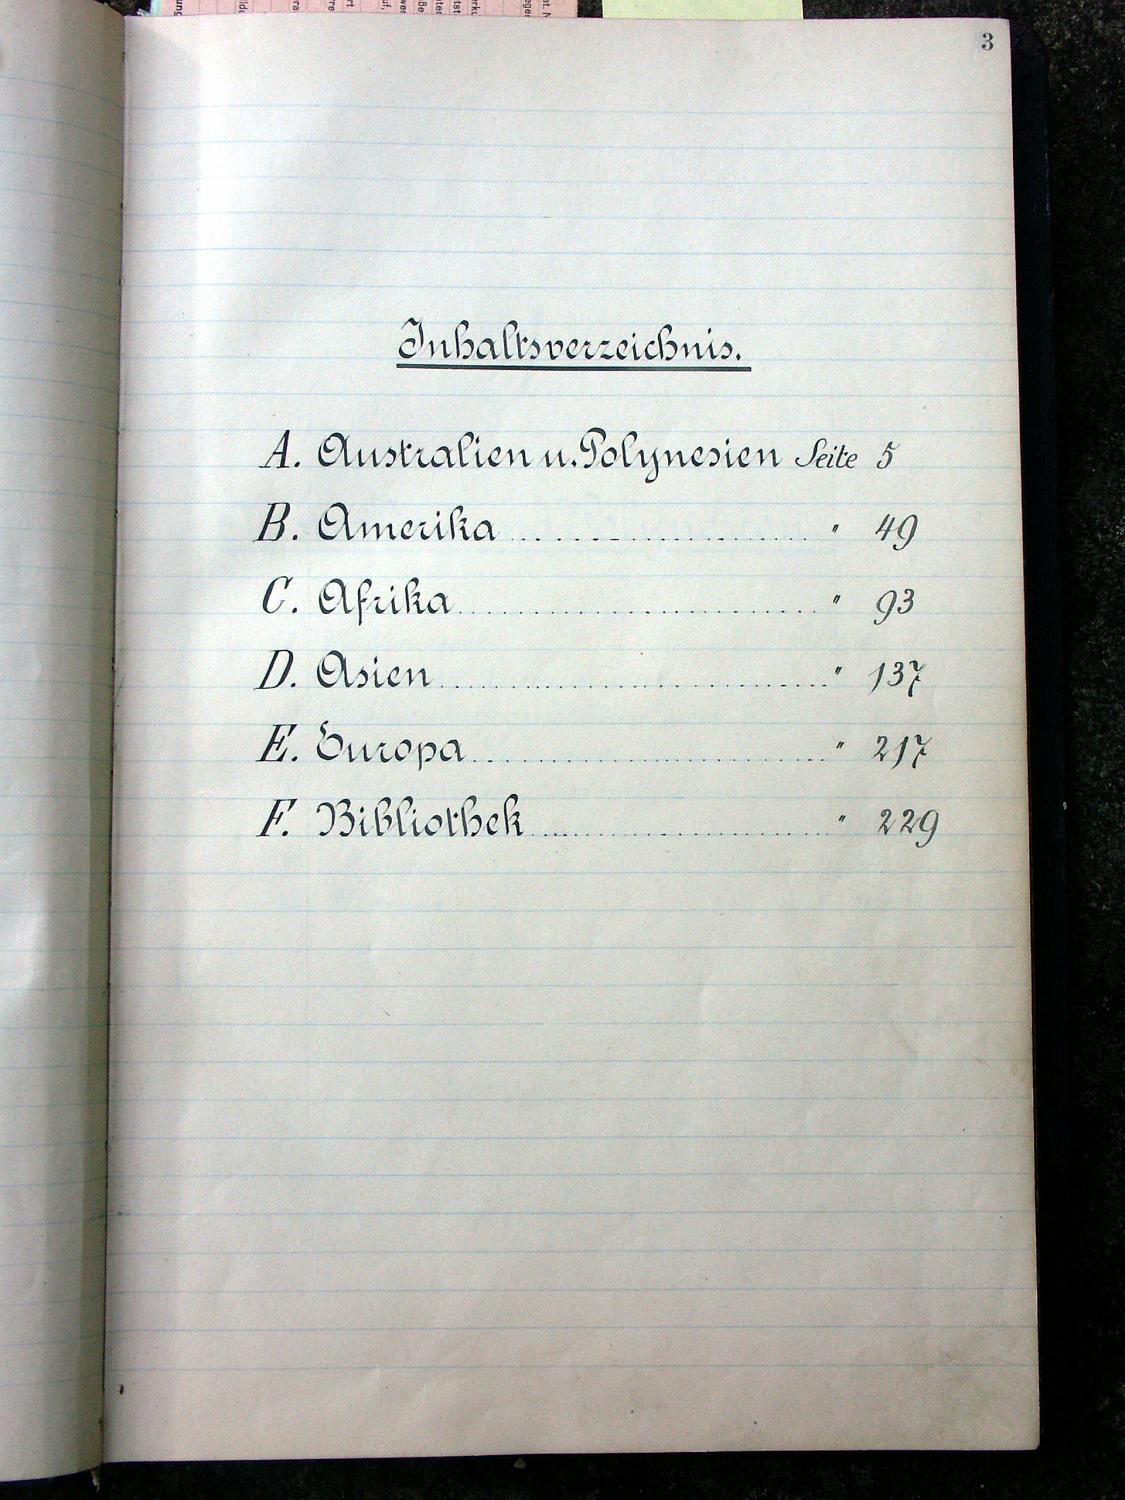 3
Inhaltsverzeichnis.
A. Australien u. Polynesien Seite 5
B. Amerika .................... " 49
C. Afrika .................... " 93
D. Asien .................... " 137
E. Europa .................... " 217
F. Bibliothek .................... " 229